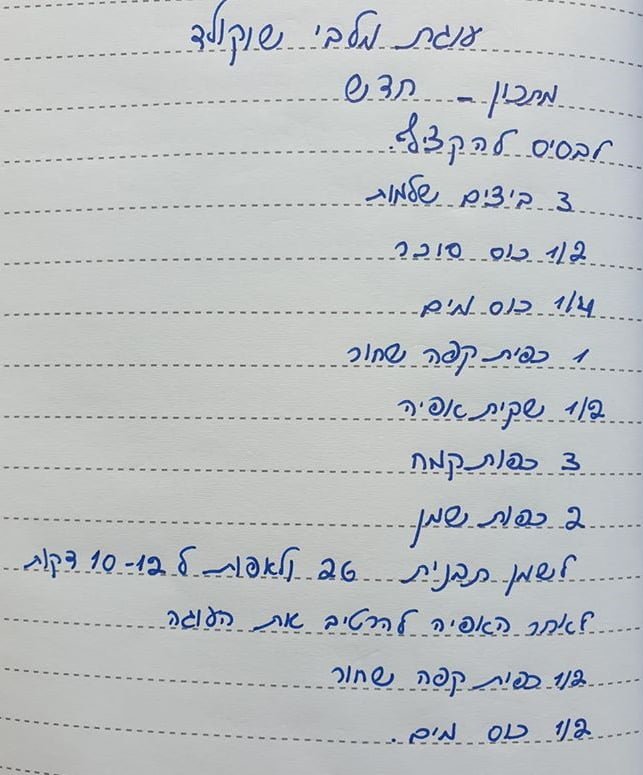 עוגת מלבי שוקולד
מתכון - חדש
לבסיס להקציף.
3 ביצים שלמות
1/2 כוס סוכר
1/4 כוס מים
1 כפית קפה שחור
1/2 שקית אפיה
3 כפות קמח
2 כפות שמן
לשמן תבנית 26 ולאפות ל 10-12 דקות
לאחר האפיה להרטיב את העוגה
1/2 כפית קפה שחור
1/2 כוס מים.